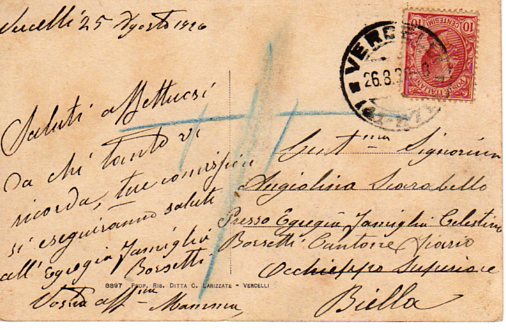 Vercelli 25 Agosto 1926
Saluti affettuosi
da chi tanto vi
ricorda, tue commissioni
si eseguiranno saluti
all'Egregia Famiglia
Borsetti
Vostra aff.ma Mamma
8897 Prop. Ris. Ditta C. Larizzate - Vercelli
VERCELLI
26.8.
CENTESIMI 10
Gent.ma Signorina
Angiolina Scarabello
Presso Egregia Famiglia Celestino
Borsetti Cantone
Occhieppo Superiore
Biella